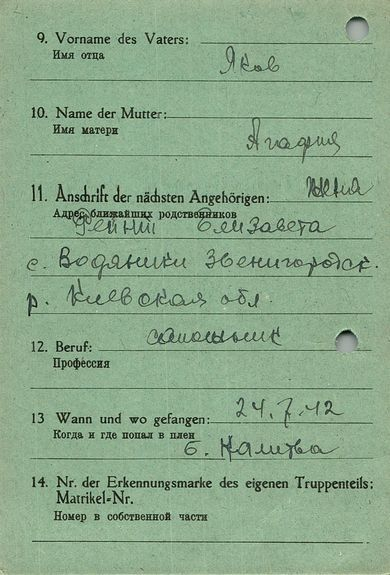 9. Vorname des Vaters:
Имя отца
Яков
10. Name der Mutter:
Имя матери
Агафия
11. Anschrift der nächsten Angehörigen: жена
Адрес ближайших родственников
Елизавета
с. Водяники Звенигородск.
р. Киевская обл
12. Beruf:
Профессия
13 Wann und wo gefangen: 24.7.42
Когда и где попал в плен
б. Калитва
14. Nr. der Erkennungsmarke des eigenen Truppenteils:
Matrikel-Nr.
Номер в собственной части